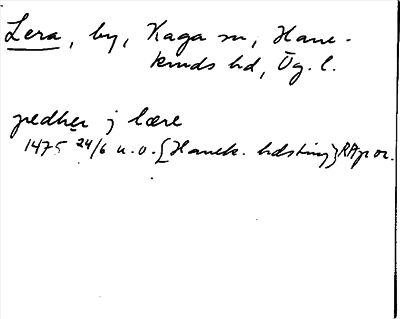 Lera, by, Kaga sn, Hane-
kinds hd, Ög. l.
pedher j lære
1475 24/6 u.o. {Hanek. hdsting} RAp or.